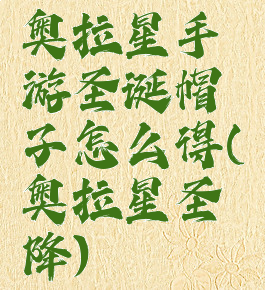 奥拉星手
游圣诞帽
子怎么得(
奥拉星圣
降)